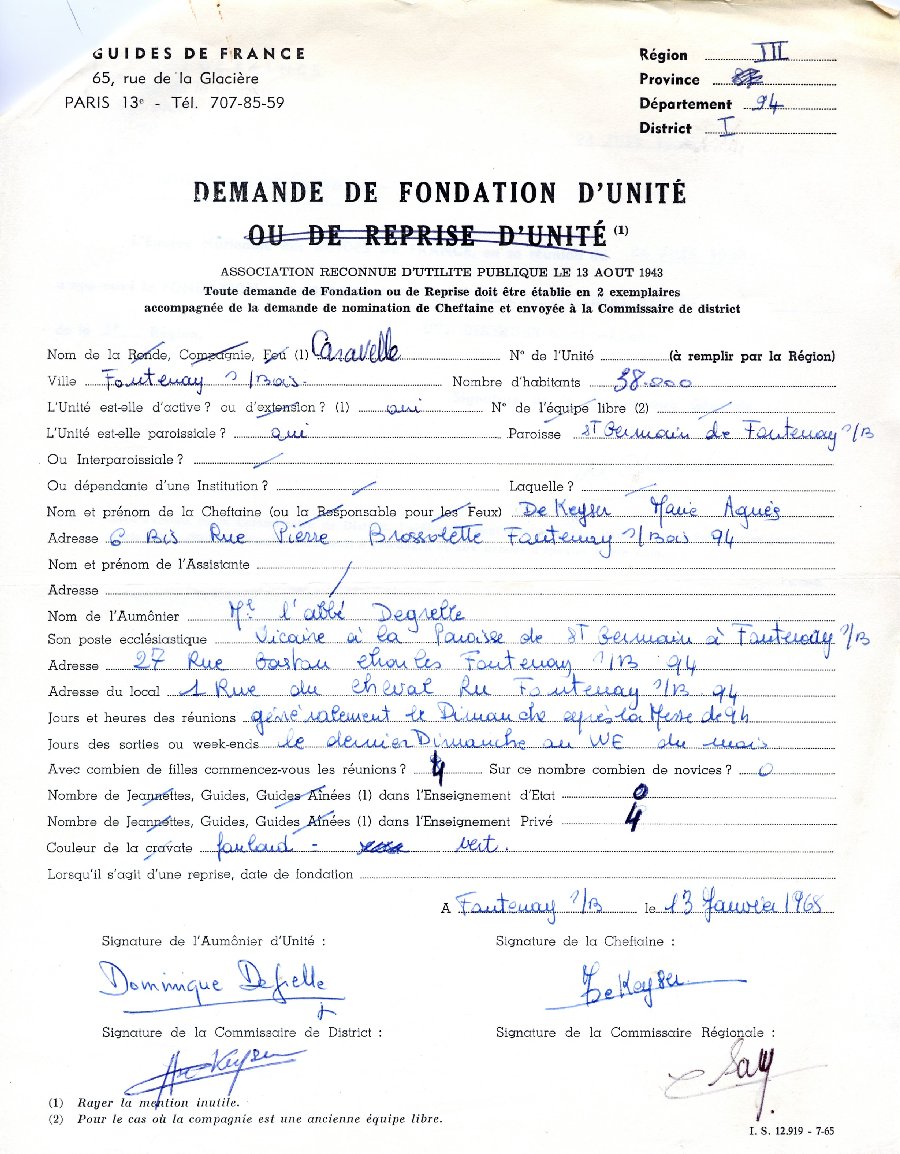 GUIDES DE FRANCE
65, rue de la Glacière
PARIS 13e - Tél. 707-85-59
Région III
Province
Département 94
District I
DEMANDE DE FONDATION D'UNITÉ
OU DE REPRISE D'UNITÉ (1)
ASSOCIATION RECONNUE D'UTILITE PUBLIQUE LE 13 AOUT 1943
Toute demande de Fondation ou de Reprise doit être établie en 2 exemplaires
accompagnée de la demande de nomination de Cheftaine et envoyée à la Commissaire de district
Nom de la Ronde, Compagnie, Feu (1) Caravelle N° de l'Unité (à remplir par la Région)
Ville Fontenay s/Bois. Nombre d'habitants 38.000
L'Unité est-elle d'active ? ou d'extension ? (1) oui N° de l'équipe libre (2)
L'Unité est-elle paroissiale ? oui Paroisse St Germain de Fontenay s/B
Ou Interparoissiale ?
Ou dépendante d'une Institution ? Laquelle ?
Nom et prénom de la Cheftaine (ou la Responsable pour les Feux) De Keyser Marie Agnès
Adresse 6 Bis Rue Pierre Brossolette Fontenay s/Bois 94
Nom et prénom de l'Assistante
Adresse
Nom de l'Aumônier Mr l'abbé Degrelle
Son poste ecclésiastique Vicaire à la Paroisse de St Germain à Fontenay s/B
Adresse 27 Rue Gaston Charles Fontenay s/B 94
Adresse du local 1 Rue du Cheval Ru Fontenay s/B 94
Jours et heures des réunions généralement le Dimanche après la Messe de 9h
Jours des sorties ou week-ends le dernier Dimanche ou WE du mois
Avec combien de filles commencez-vous les réunions ? 4 Sur ce nombre combien de novices ? 0
Nombre de Jeannettes, Guides, Guides Aînées (1) dans l'Enseignement d'Etat 0
Nombre de Jeannettes, Guides, Guides Aînées (1) dans l'Enseignement Privé 4
Couleur de la cravate foulard - vert.
Lorsqu'il s'agit d'une reprise, date de fondation
A Fontenay s/B le 13 Janvier 1968
Signature de l'Aumônier d'Unité : Signature de la Cheftaine :
Dominique Degrelle De Keyser
Signature de la Commissaire de District : Signature de la Commissaire Régionale :
(1) Rayer la mention inutile.
(2) Pour le cas où la compagnie est une ancienne équipe libre.
I. S. 12.919 - 7-65